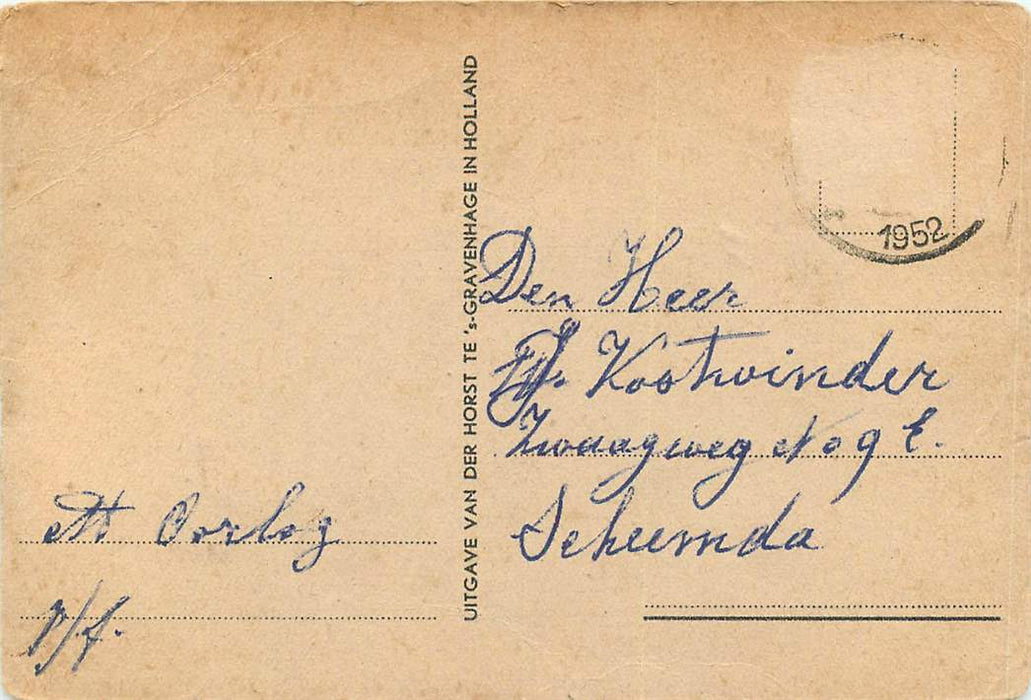 M Oorlog
p/f.
UITGAVE VAN DER HORST TE 's-GRAVENHAGE IN HOLLAND
1952
Den Heer
Kostwinder
Zwaagweg No 9 E.
Scheemda